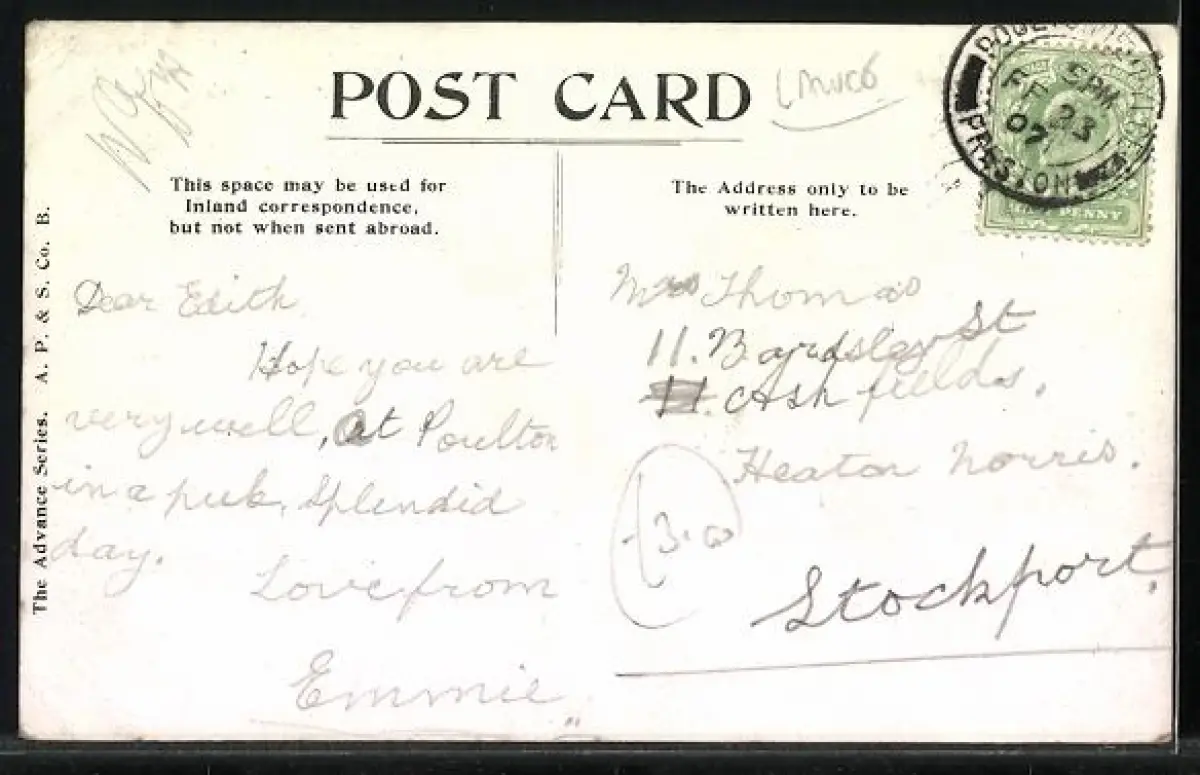 POST CARD
This space may be used for
Inland correspondence,
but not when sent abroad.
The Address only to be
written here.
The Advance Series. A. P. & S. Co. B.
5PM
FE 23
07
PRESTON
HALF PENNY
Dear Edith
Hope you are
very well, At Poulton
in a pub, Splendid
day.
Love from
Emmie
Mrs Thomas
11. Bardsley St
Ash fields.
Heaton Norris.
Stockport.